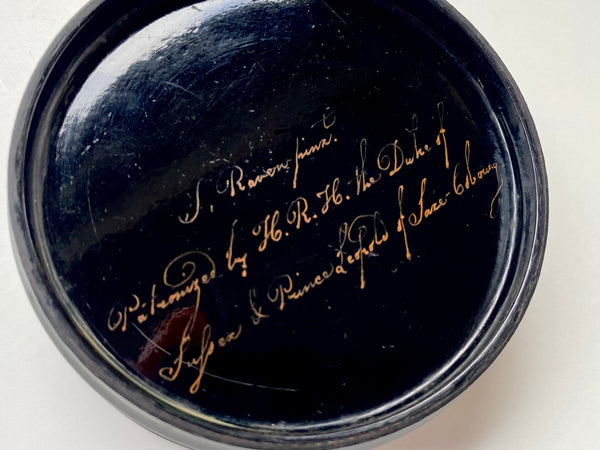 S, Raven pinx.
Patronized by H. R. H. the Duke of
Sussex & Prince Leopold of Saxe-Cobourg